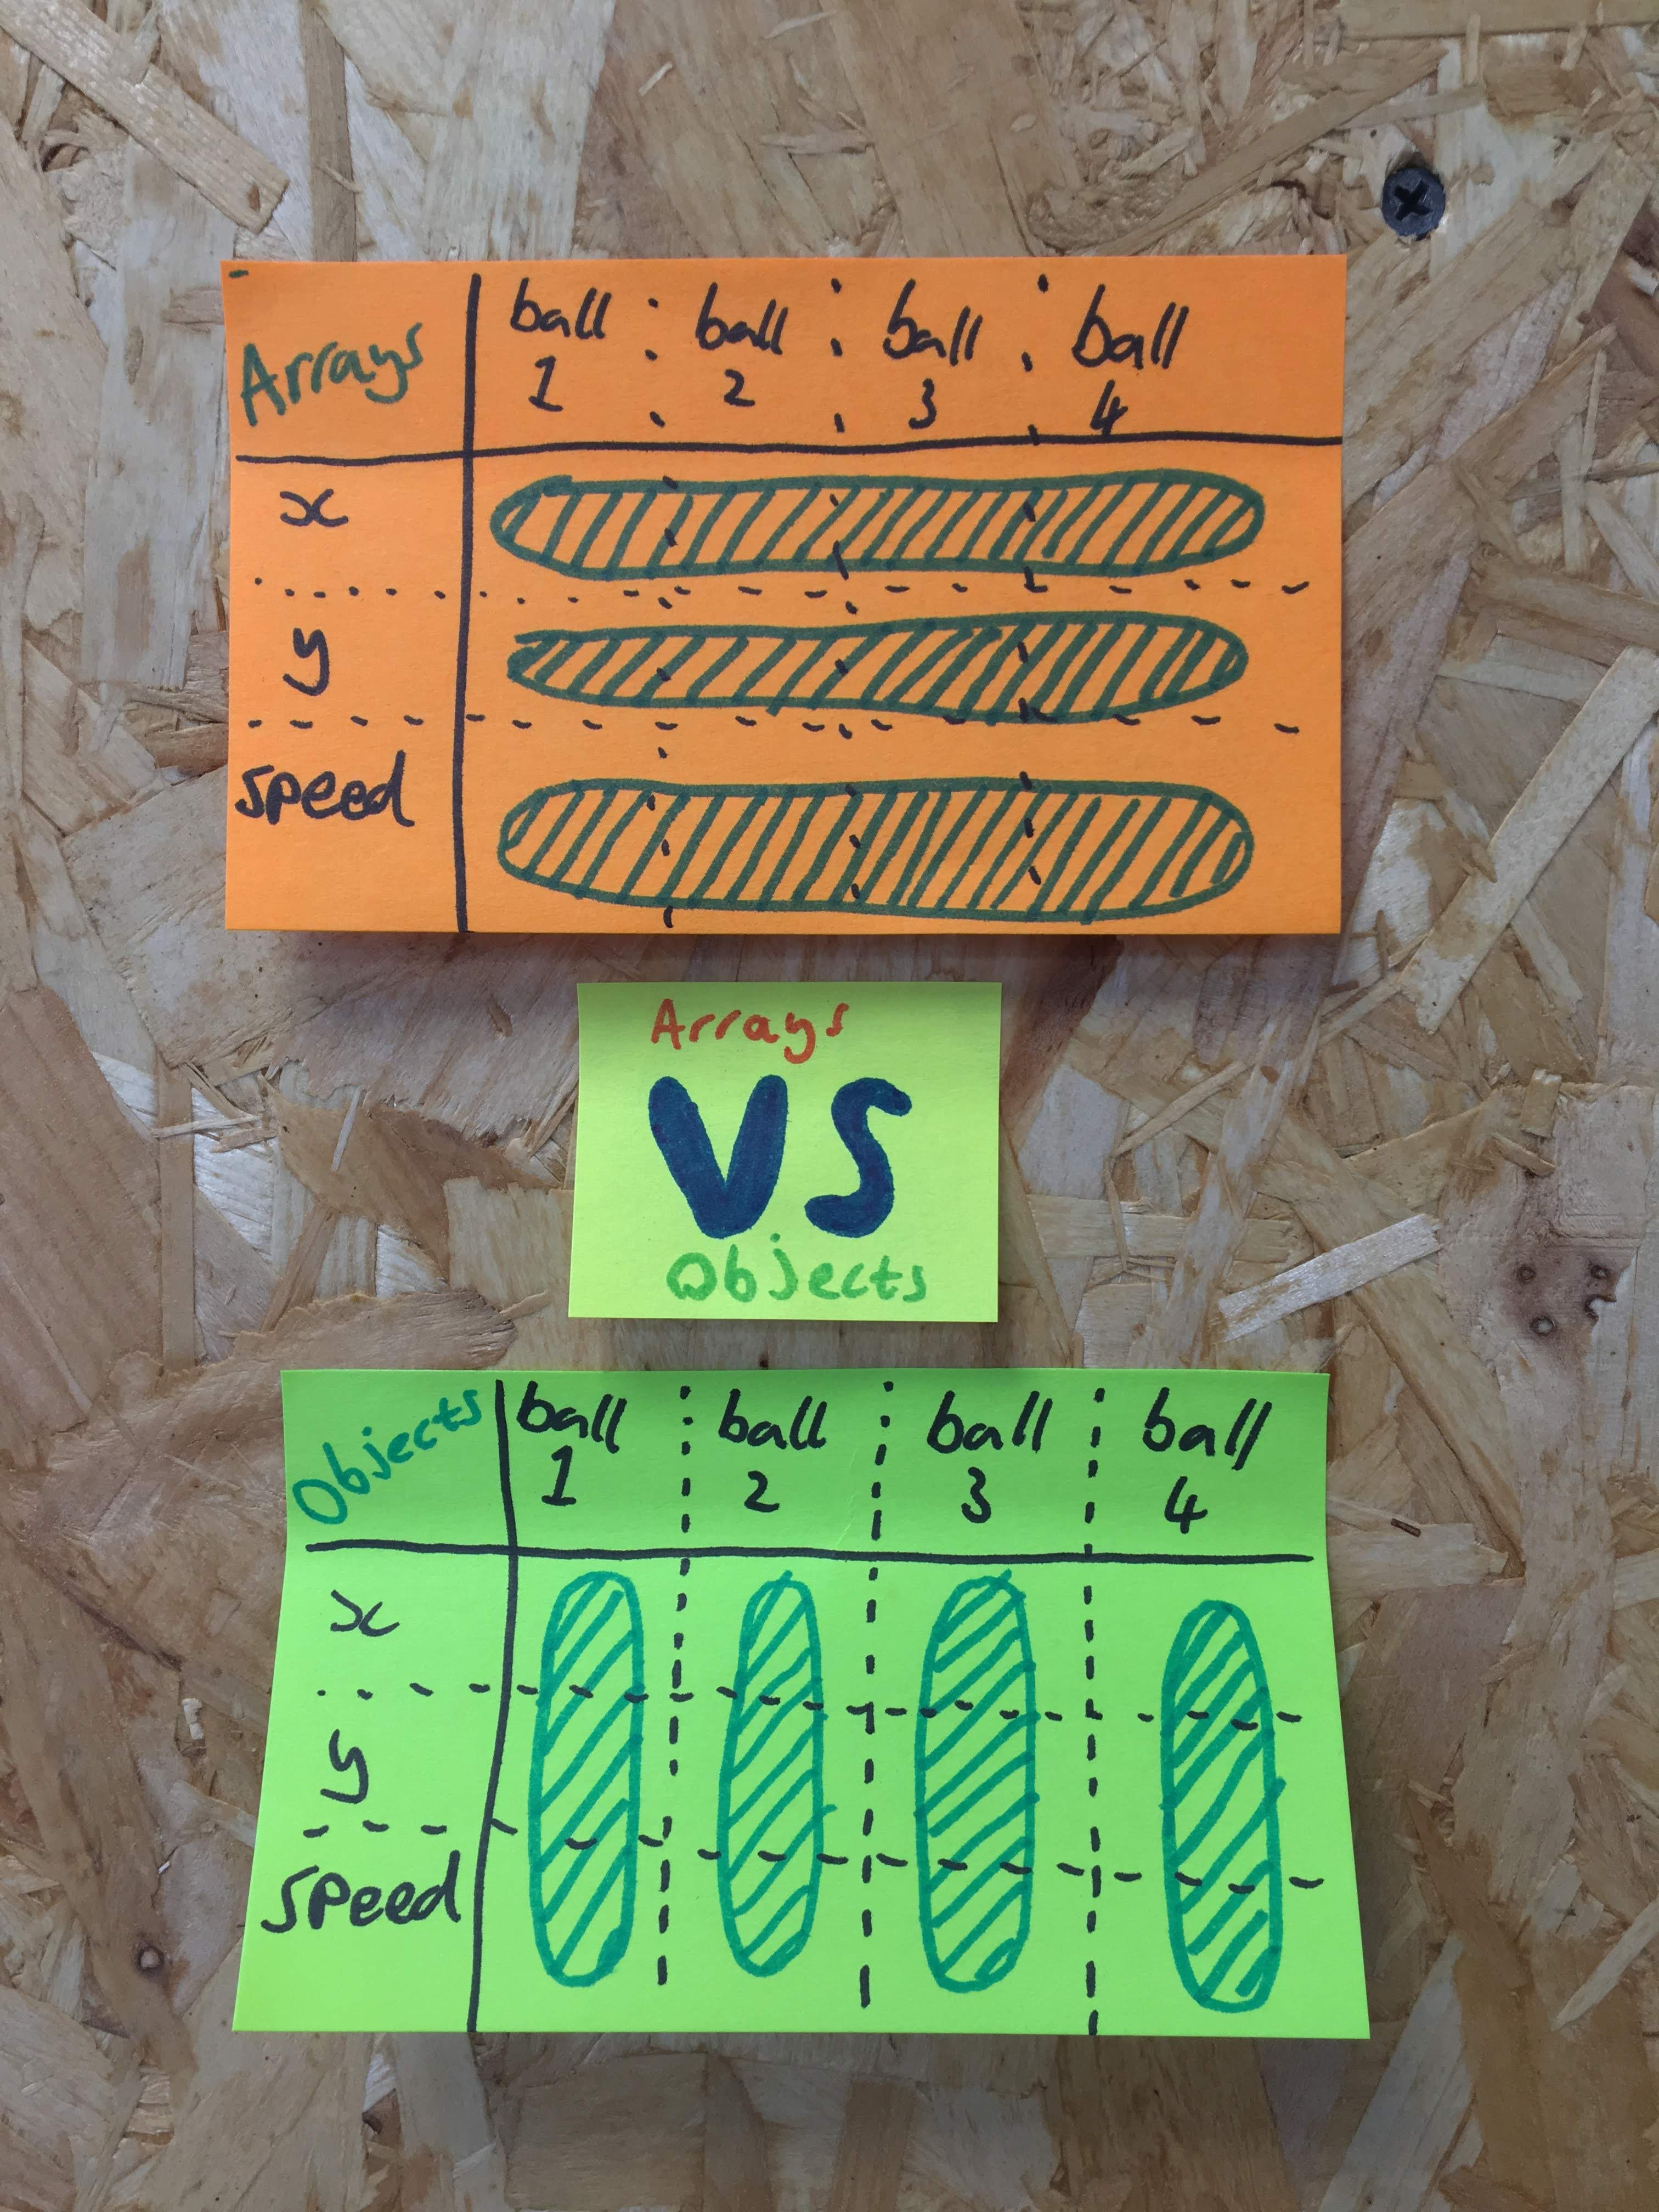 Arrays ball ball ball ball
1 2 3 4
x
y
speed
Arrays
VS
Objects
Objects ball ball ball ball
1 2 3 4
x
y
speed